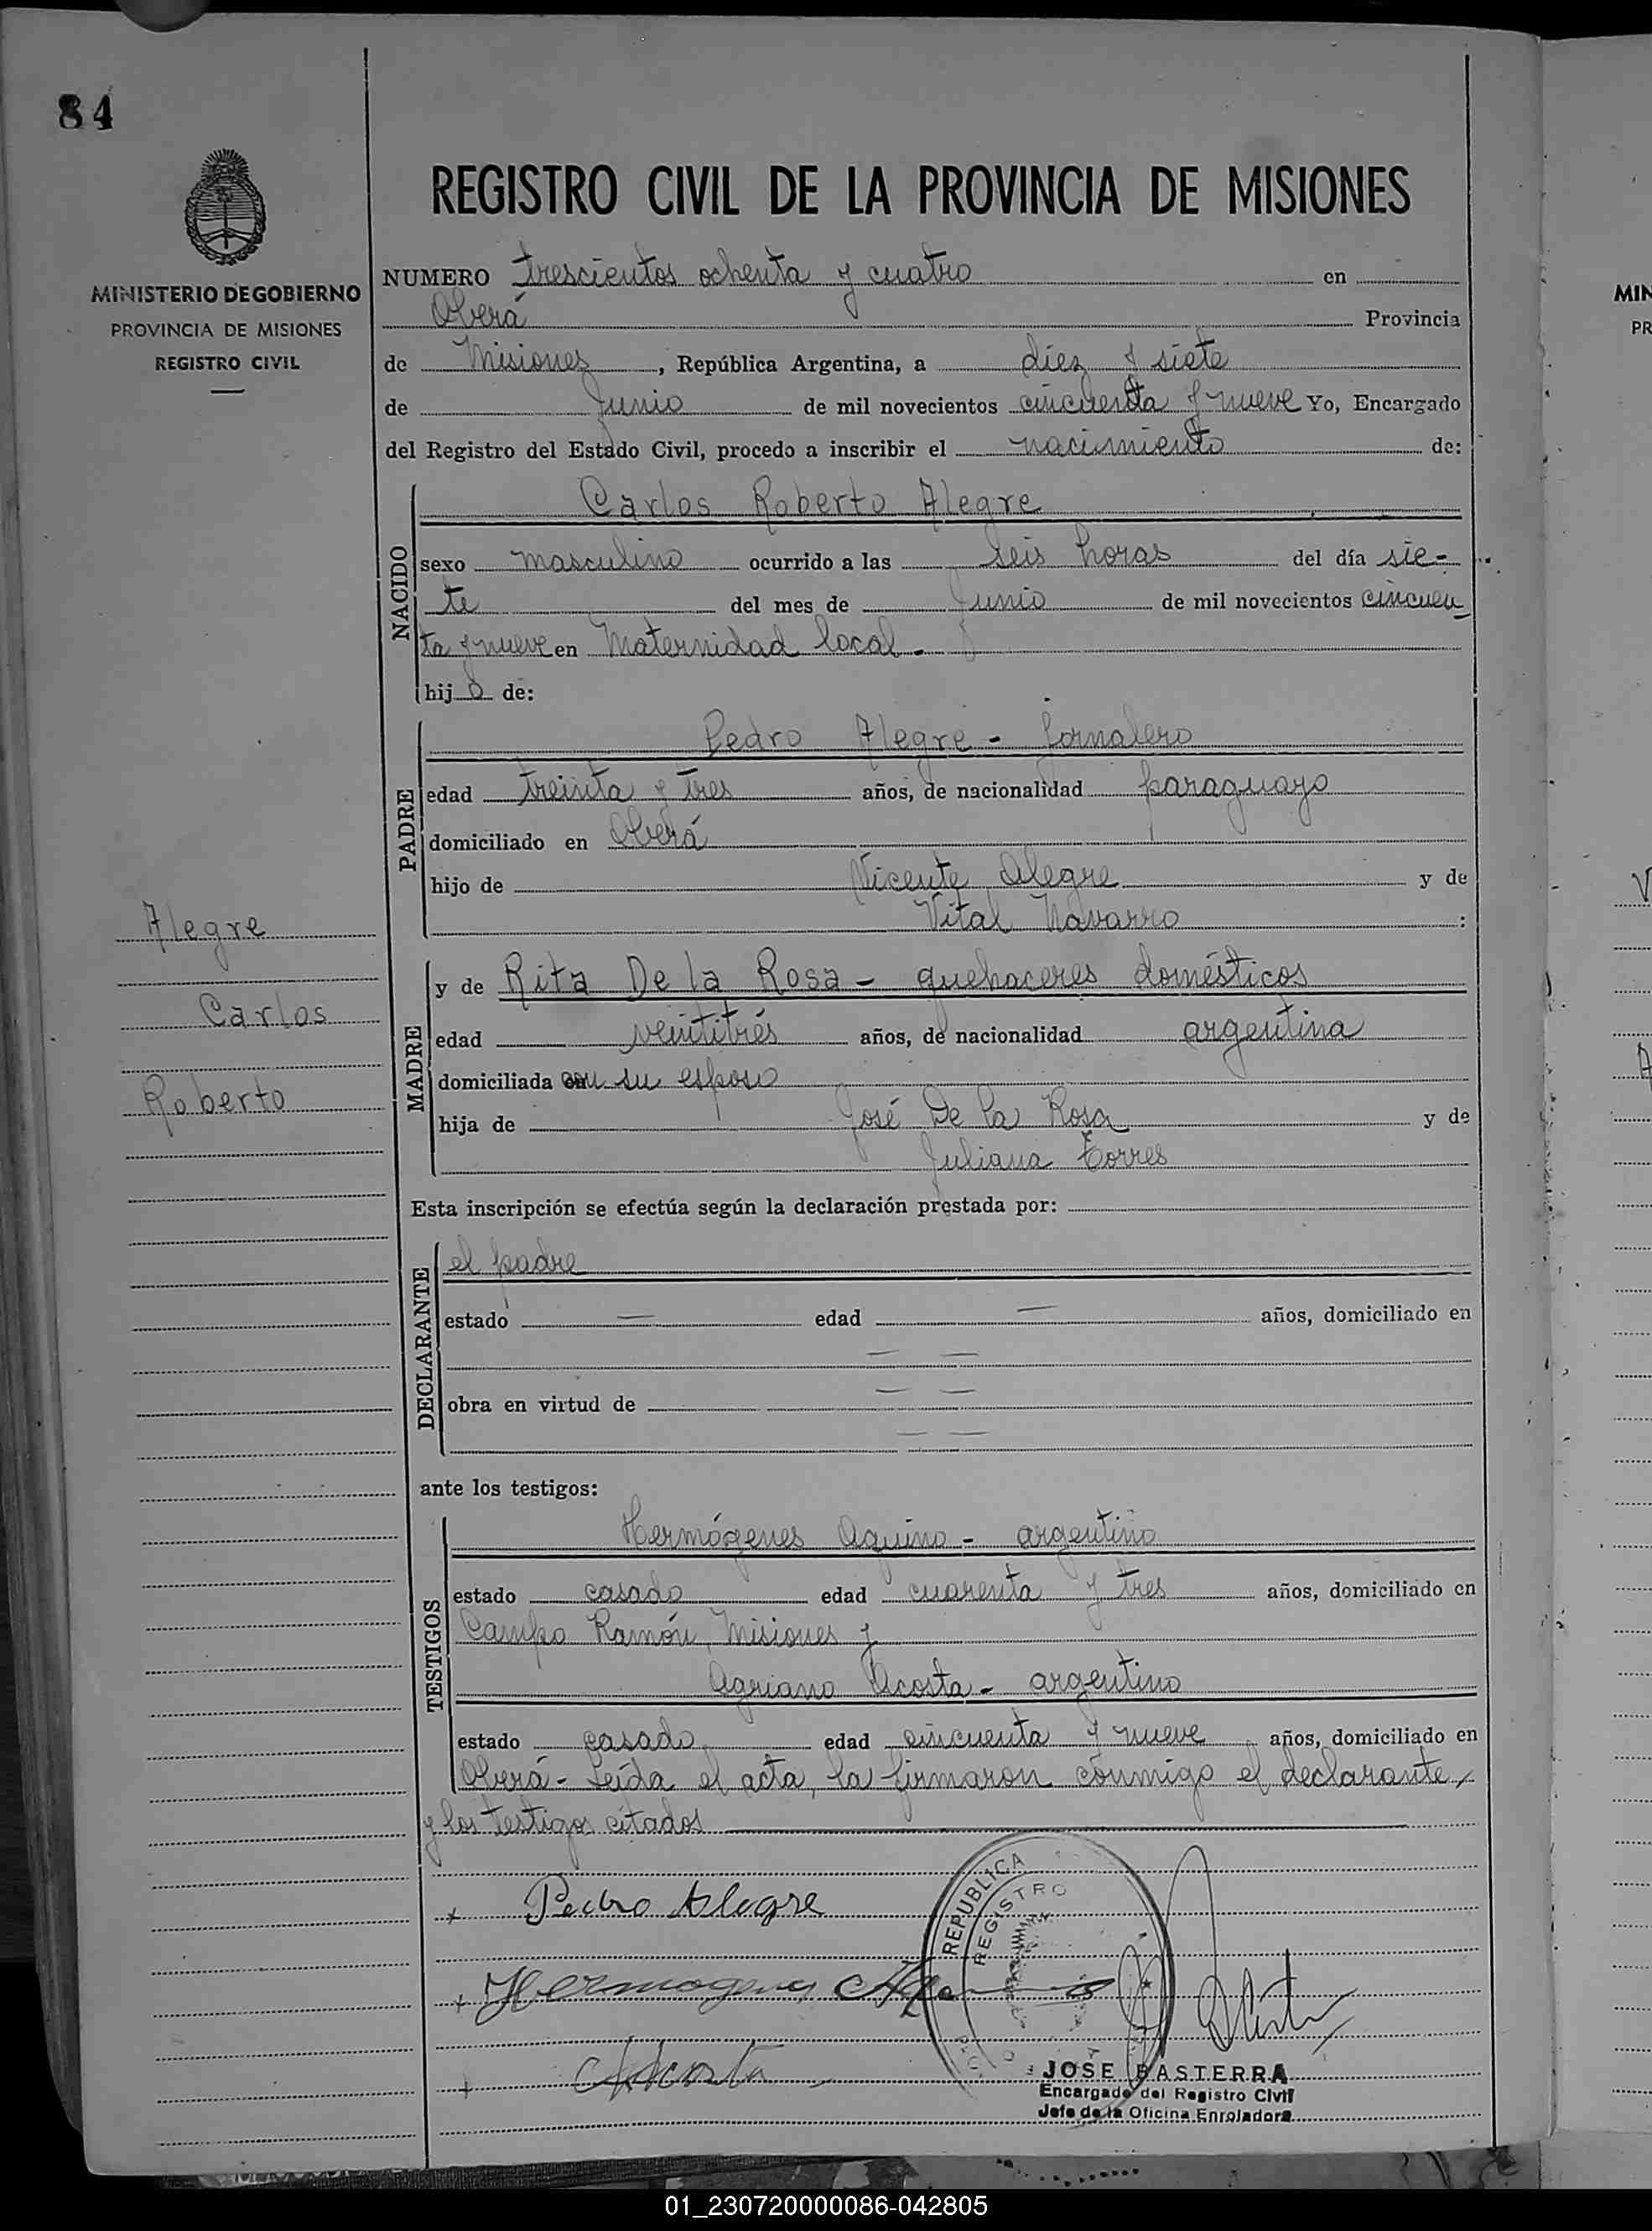 84
MINISTERIO DE GOBIERNO
PROVINCIA DE MISIONES
REGISTRO CIVIL
REGISTRO CIVIL DE LA PROVINCIA DE MISIONES
NUMERO trescientos ochenta y cuatro en
Oberá Provincia
de Misiones, República Argentina, a diez y siete
de Junio de mil novecientos cincuenta y nueve Yo, Encargado
del Registro del Estado Civil, procedo a inscribir el nacimiento de:
NACIDO
Carlos Roberto Alegre
sexo masculino ocurrido a las seis horas del día sie-
te del mes de Junio de mil novecientos cincuen
ta y nueve en Maternidad local.
hijo de:
PADRE
Pedro Alegre - Jornalero
edad treinta y tres años, de nacionalidad paraguayo
domiciliado en Oberá
hijo de Vicente Alegre y de
Vital Navarro :
MADRE
y de Rita De la Rosa - quehaceres domésticos
edad veintitrés años, de nacionalidad argentina
domiciliada con su esposo
hija de José De la Rosa y de
Juliana Torres
Alegre
Carlos
Roberto
Esta inscripción se efectúa según la declaración prestada por:
DECLARANTE
el padre
estado — edad — años, domiciliado en
— —
obra en virtud de — —
— —
ante los testigos:
TESTIGOS
Hermógenes Aquino - argentino
estado casado edad cuarenta y tres años, domiciliado en
Campo Ramón, Misiones y
Agriano Acosta - argentino
estado casado edad cincuenta y nueve años, domiciliado en
Oberá - Leída el acta, la firmaron conmigo el declarante,
y los testigos citados
+ Pedro Alegre
REPUBLICA
REGISTRO
+ Hermogenes
+ Acosta
JOSE BASTERRA
Encargado del Registro Civil
Jefe de la Oficina Enroladora
MIN
PR
01_230720000086-042805